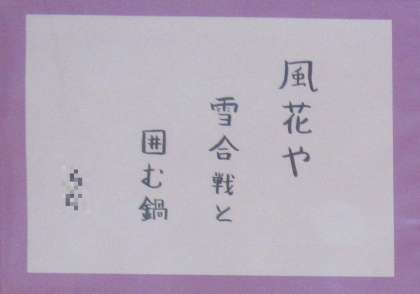 風花や
雪合戦と
囲む鍋